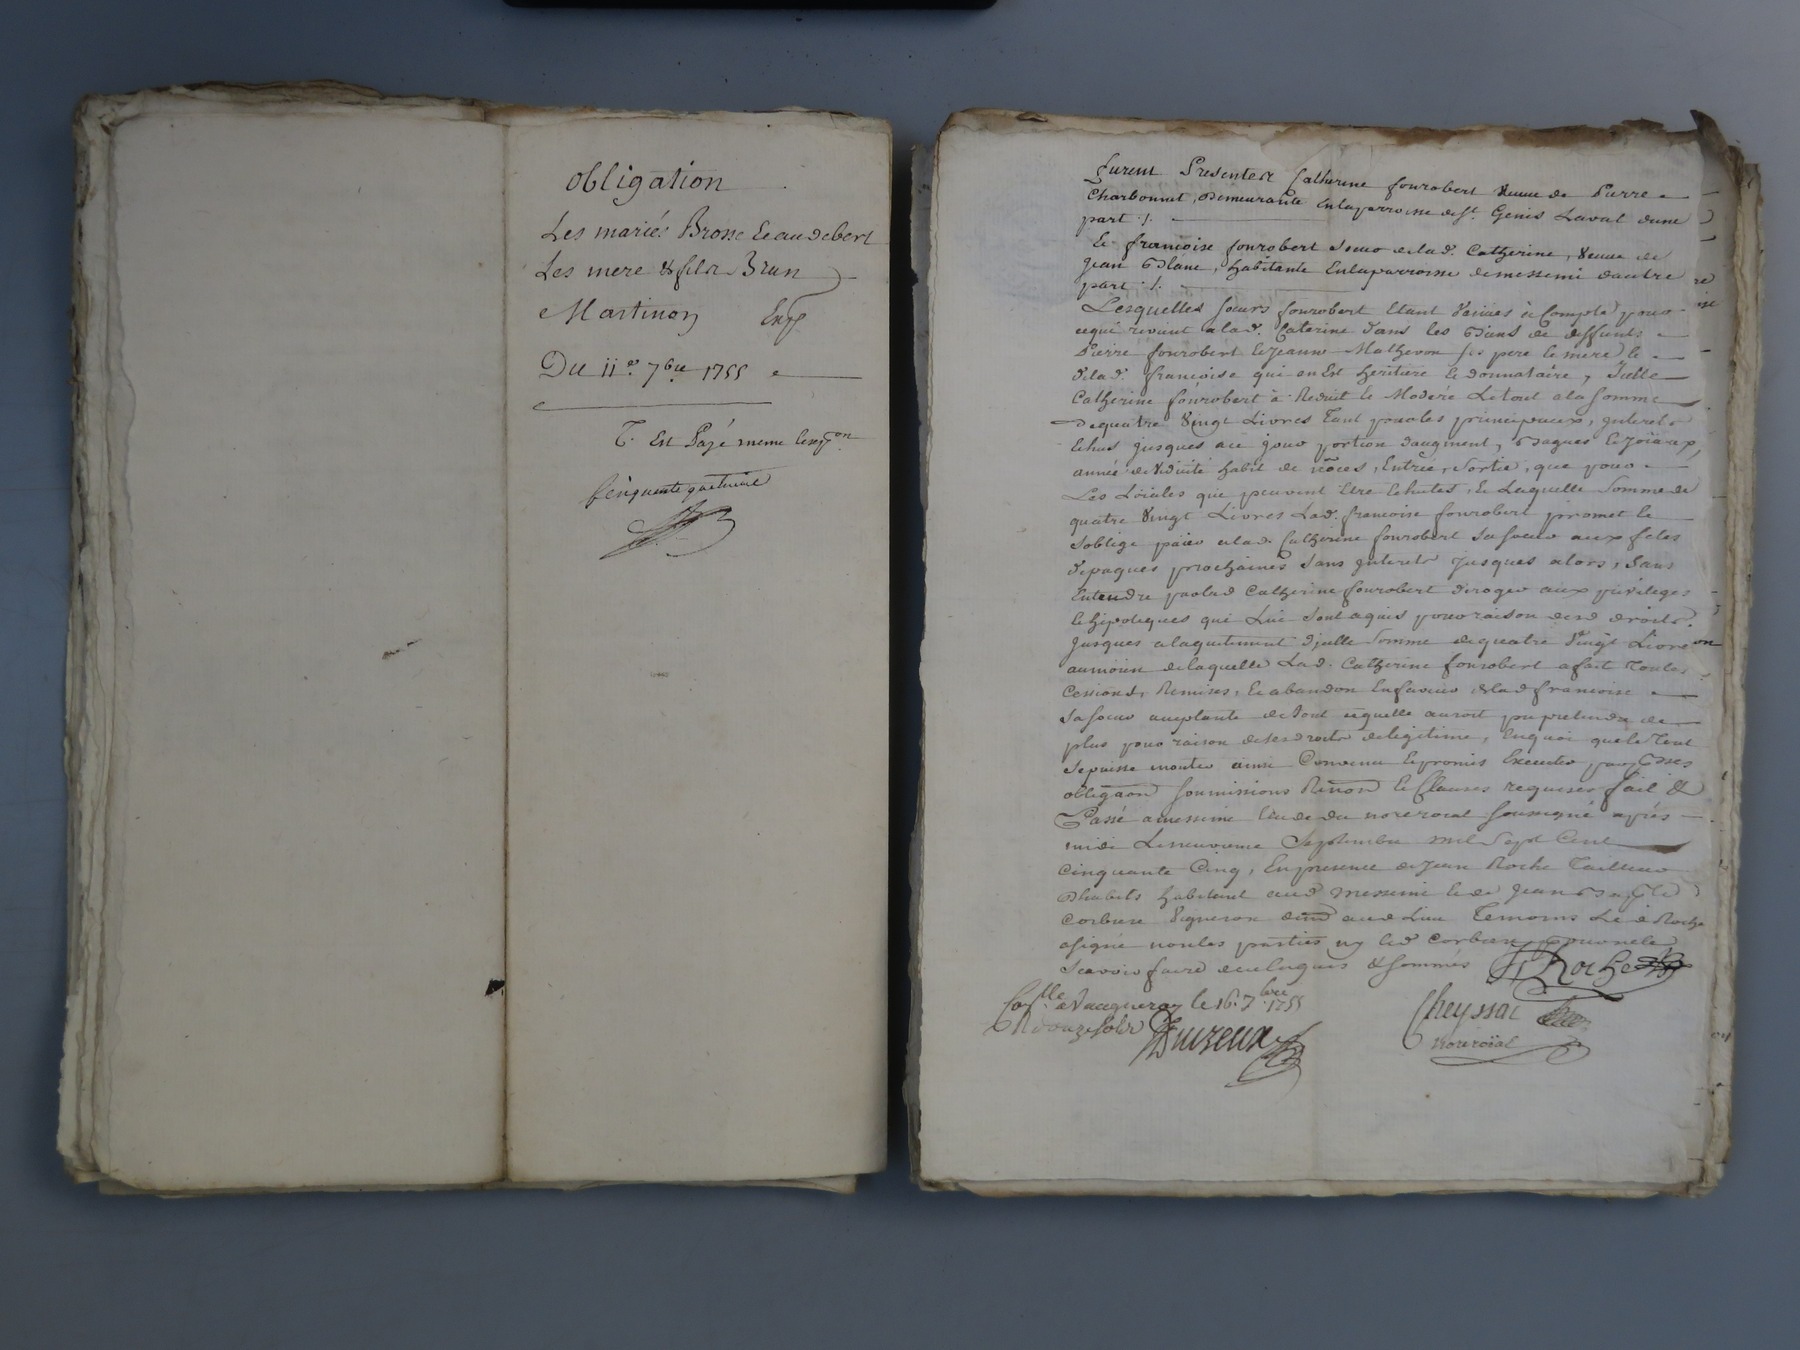 obligation
Les mariés Brosse Et audebert
Les mere & fils Brun
Martinon Exp
Du 11e 7bre 1755
T. Est Payé meme lexpon
Cinquante quatrieme
furent Presentes Catherine fourobert Veuve de Pierre
Charbonnat, Demeurante En laparroisse de st Genis Laval dune
part /.
Et francoise fourobert soeur de lad. Catherine, Veuve de
Jean Blanc, habitante En laparroisse de messimi dautre
part /.
Lesquelles soeurs fourobert Etant Venües à Compte pour
cequi revient a lad. Caterine dans les Biens de deffunts
Pierre fourobert Et Jeanne Matheron ses pere Et mere Et
de lad. francoise qui en Est heritiere Et donnataire, Icelle
Catherine fourobert à Reduit Et Moderé Le tout a la somme
de quatre Vingt Livres Tant pour les principaux, Interets
Echus jusques a ce jour portion daugment, Bagues Et joiaux,
année de Viduité habit de nôces, Entrée, sortie, que pour
Les Loiales qui peuvent Etre Echutes, Et Laquelle somme de
quatre Vingt Livres Lad. francoise fourobert promet Et
soblige païer a lad. Catherine fourobert sa soeur aux fetes
de paques prochaines sans Interets jusques alors, sans
Entendre par lad Catherine fourobert deroger aux privileges
Et hipoteques qui Lui sont aquis pour raison desd droits
Jusques a laquitement dicelle somme de quatre Vingt Livres
aumoien de laquelle Lad. Catherine fourobert a fait Toutes
Cessions, Remises, Et abandon En faveur de lad francoise
sa soeur aceptante de tout cequelle auroit pu pretendre de
plus pour raison de ses droits de legitime, En quoi que le Tout
se puisse monter ainsi Convenu Et promis Executer par
obligaon soumissions Renon Et Clauses requises fait &
Passé a messimi Etude du nore roial soussigné aprés
midi Le neuvieme Septembre mil Sept Cent
Cinquante Cinq, En presence de Jean Roche Tailleur
Dhabits habitant aud Messimi Et de Jean
Corbiere Vigneron dud Lieu Temoins Led Roche
asigné non les parties ny led Corbiere pour ne le
scavoir faire de ce Enquis & sommés J Roche
Conlle a Vaugneray le 16. 7bre 1755
R douze sols Duizeux
Cheyssac
nore roïal